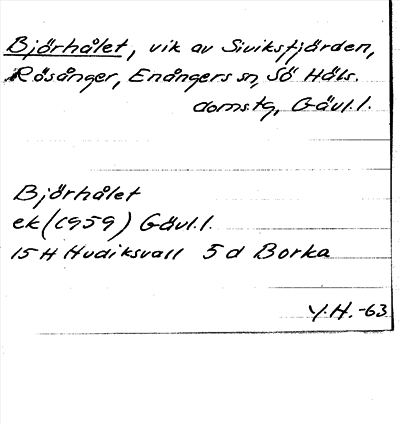 Björhålet, vik av Siviksfjärden,
Rösånger, Enångers sn, Sö Häls.
domstg, Gävl.l.
Björhålet
ek (1959) Gävl.l.
15 H Hudiksvall 5 d Borka
Y.H. -63